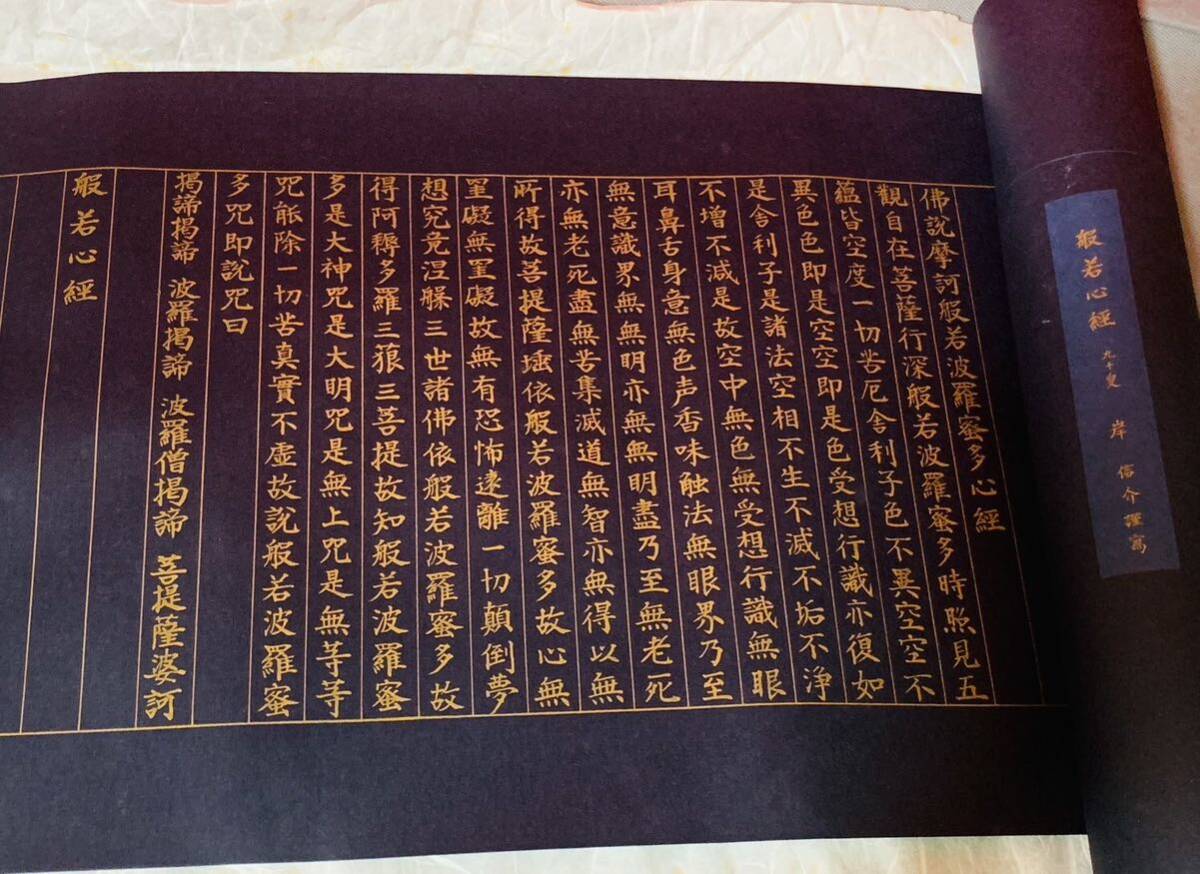 般若心經 九十叟 岸 信介謹寫
佛說摩訶般若波羅蜜多心經
觀自在菩薩行深般若波羅蜜多時照見五
蘊皆空度一切苦厄舍利子色不異空空不
異色色即是空空即是色受想行識亦復如
是舍利子是諸法空相不生不滅不垢不淨
不增不減是故空中無色無受想行識無眼
耳鼻舌身意無色声香味触法無眼界乃至
無意識界無無明亦無無明盡乃至無老死
亦無老死盡無苦集滅道無智亦無得以無
所得故菩提薩埵依般若波羅蜜多故心無
罣礙無罣礙故無有恐怖遠離一切顛倒夢
想究竟涅槃三世諸佛依般若波羅蜜多故
得阿耨多羅三藐三菩提故知般若波羅蜜
多是大神咒是大明咒是無上咒是無等等
咒能除一切苦真實不虛故說般若波羅蜜
多咒即說咒曰
揭諦揭諦 波羅揭諦 波羅僧揭諦 菩提薩婆訶
般若心經